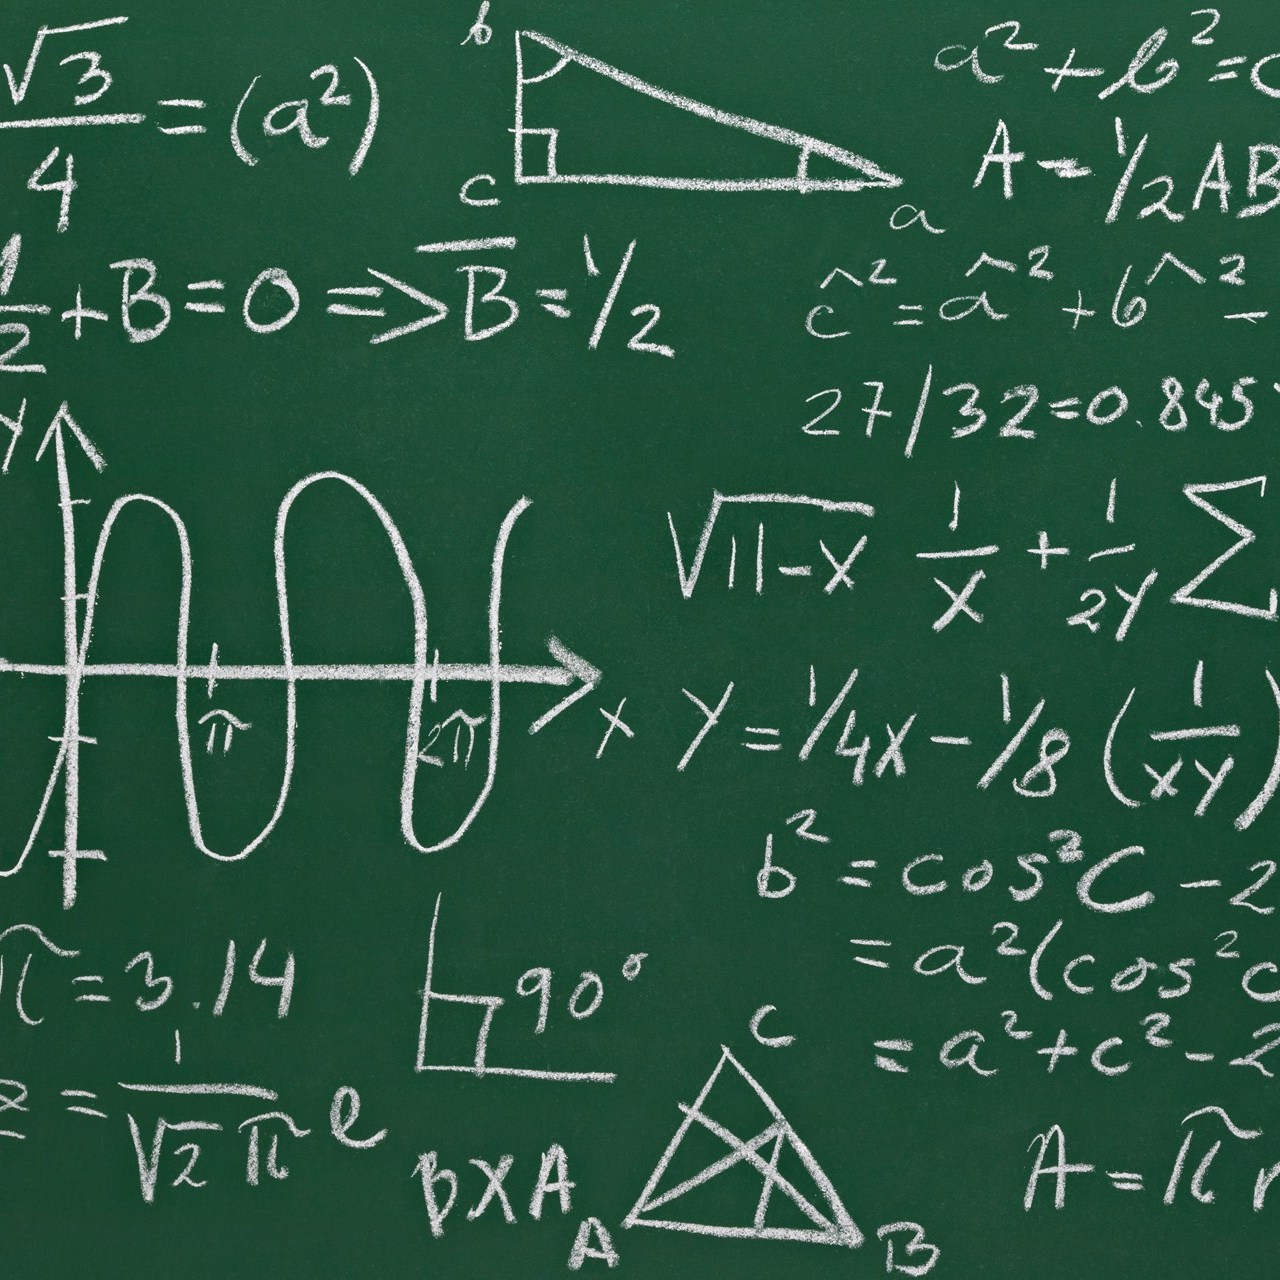 √3/4 = (a²)
b
c
a
a² + b² =
A = 1/2 AB
1/2 + B = 0 => B̅ = 1/2
ĉ² = â² + b^² -
27/32 = 0.845
Y
π
2π
X
√11-X 1/X + 1/2Y Σ
Y = 1/4X - 1/8 (1/XY)
b² = cos²C - 2
= a²(cos²c
= a² + c² - 2
π = 3.14
90°
= 1/√2π e
BXA
C
A
B
A = π r